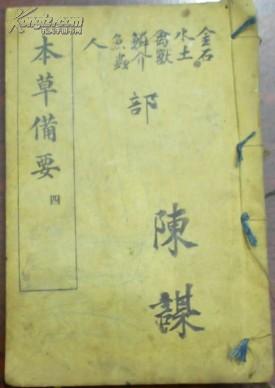 金石
水土
禽獸
鱗介
魚蟲
人
部
陳謀
本草備要
四